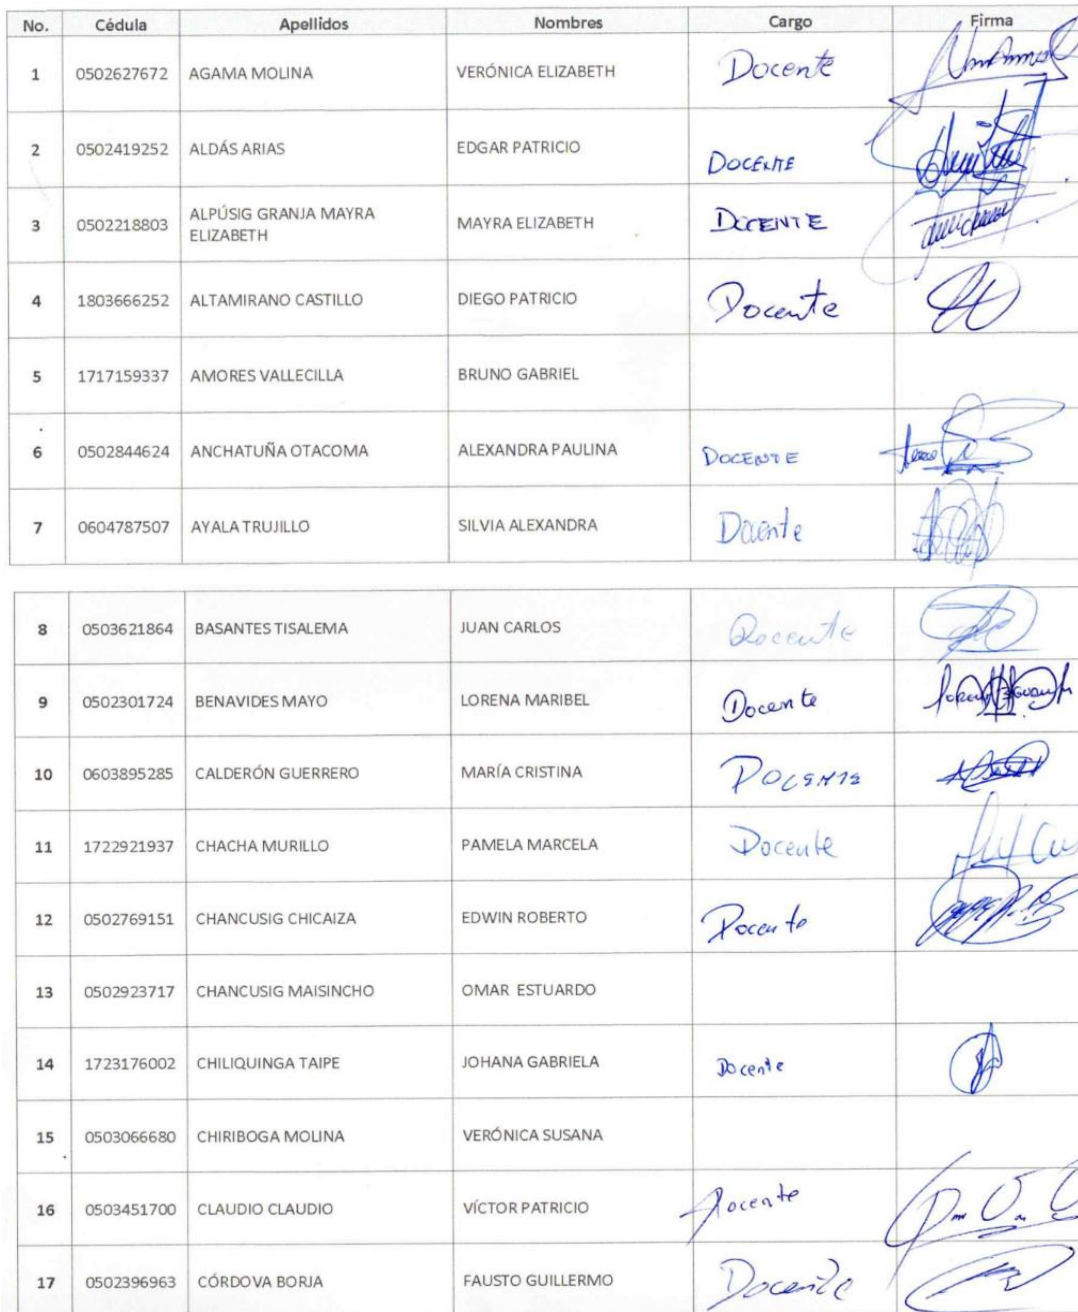 No. Cédula Apellidos Nombres Cargo Firma
1 0502627672 AGAMA MOLINA VERÓNICA ELIZABETH Docente
2 0502419252 ALDÁS ARIAS EDGAR PATRICIO DOCENTE
3 0502218803 ALPÚSIG GRANJA MAYRA ELIZABETH MAYRA ELIZABETH DOCENTE
4 1803666252 ALTAMIRANO CASTILLO DIEGO PATRICIO Docente
5 1717159337 AMORES VALLECILLA BRUNO GABRIEL
6 0502844624 ANCHATUÑA OTACOMA ALEXANDRA PAULINA DOCENTE
7 0604787507 AYALA TRUJILLO SILVIA ALEXANDRA Docente
8 0503621864 BASANTES TISALEMA JUAN CARLOS Docente
9 0502301724 BENAVIDES MAYO LORENA MARIBEL Docente
10 0603895285 CALDERÓN GUERRERO MARÍA CRISTINA DOCENTE
11 1722921937 CHACHA MURILLO PAMELA MARCELA Docente
12 0502769151 CHANCUSIG CHICAIZA EDWIN ROBERTO Docente
13 0502923717 CHANCUSIG MAISINCHO OMAR ESTUARDO
14 1723176002 CHILIQUINGA TAIPE JOHANA GABRIELA Docente
15 0503066680 CHIRIBOGA MOLINA VERÓNICA SUSANA
16 0503451700 CLAUDIO CLAUDIO VÍCTOR PATRICIO Docente
17 0502396963 CÓRDOVA BORJA FAUSTO GUILLERMO Docente